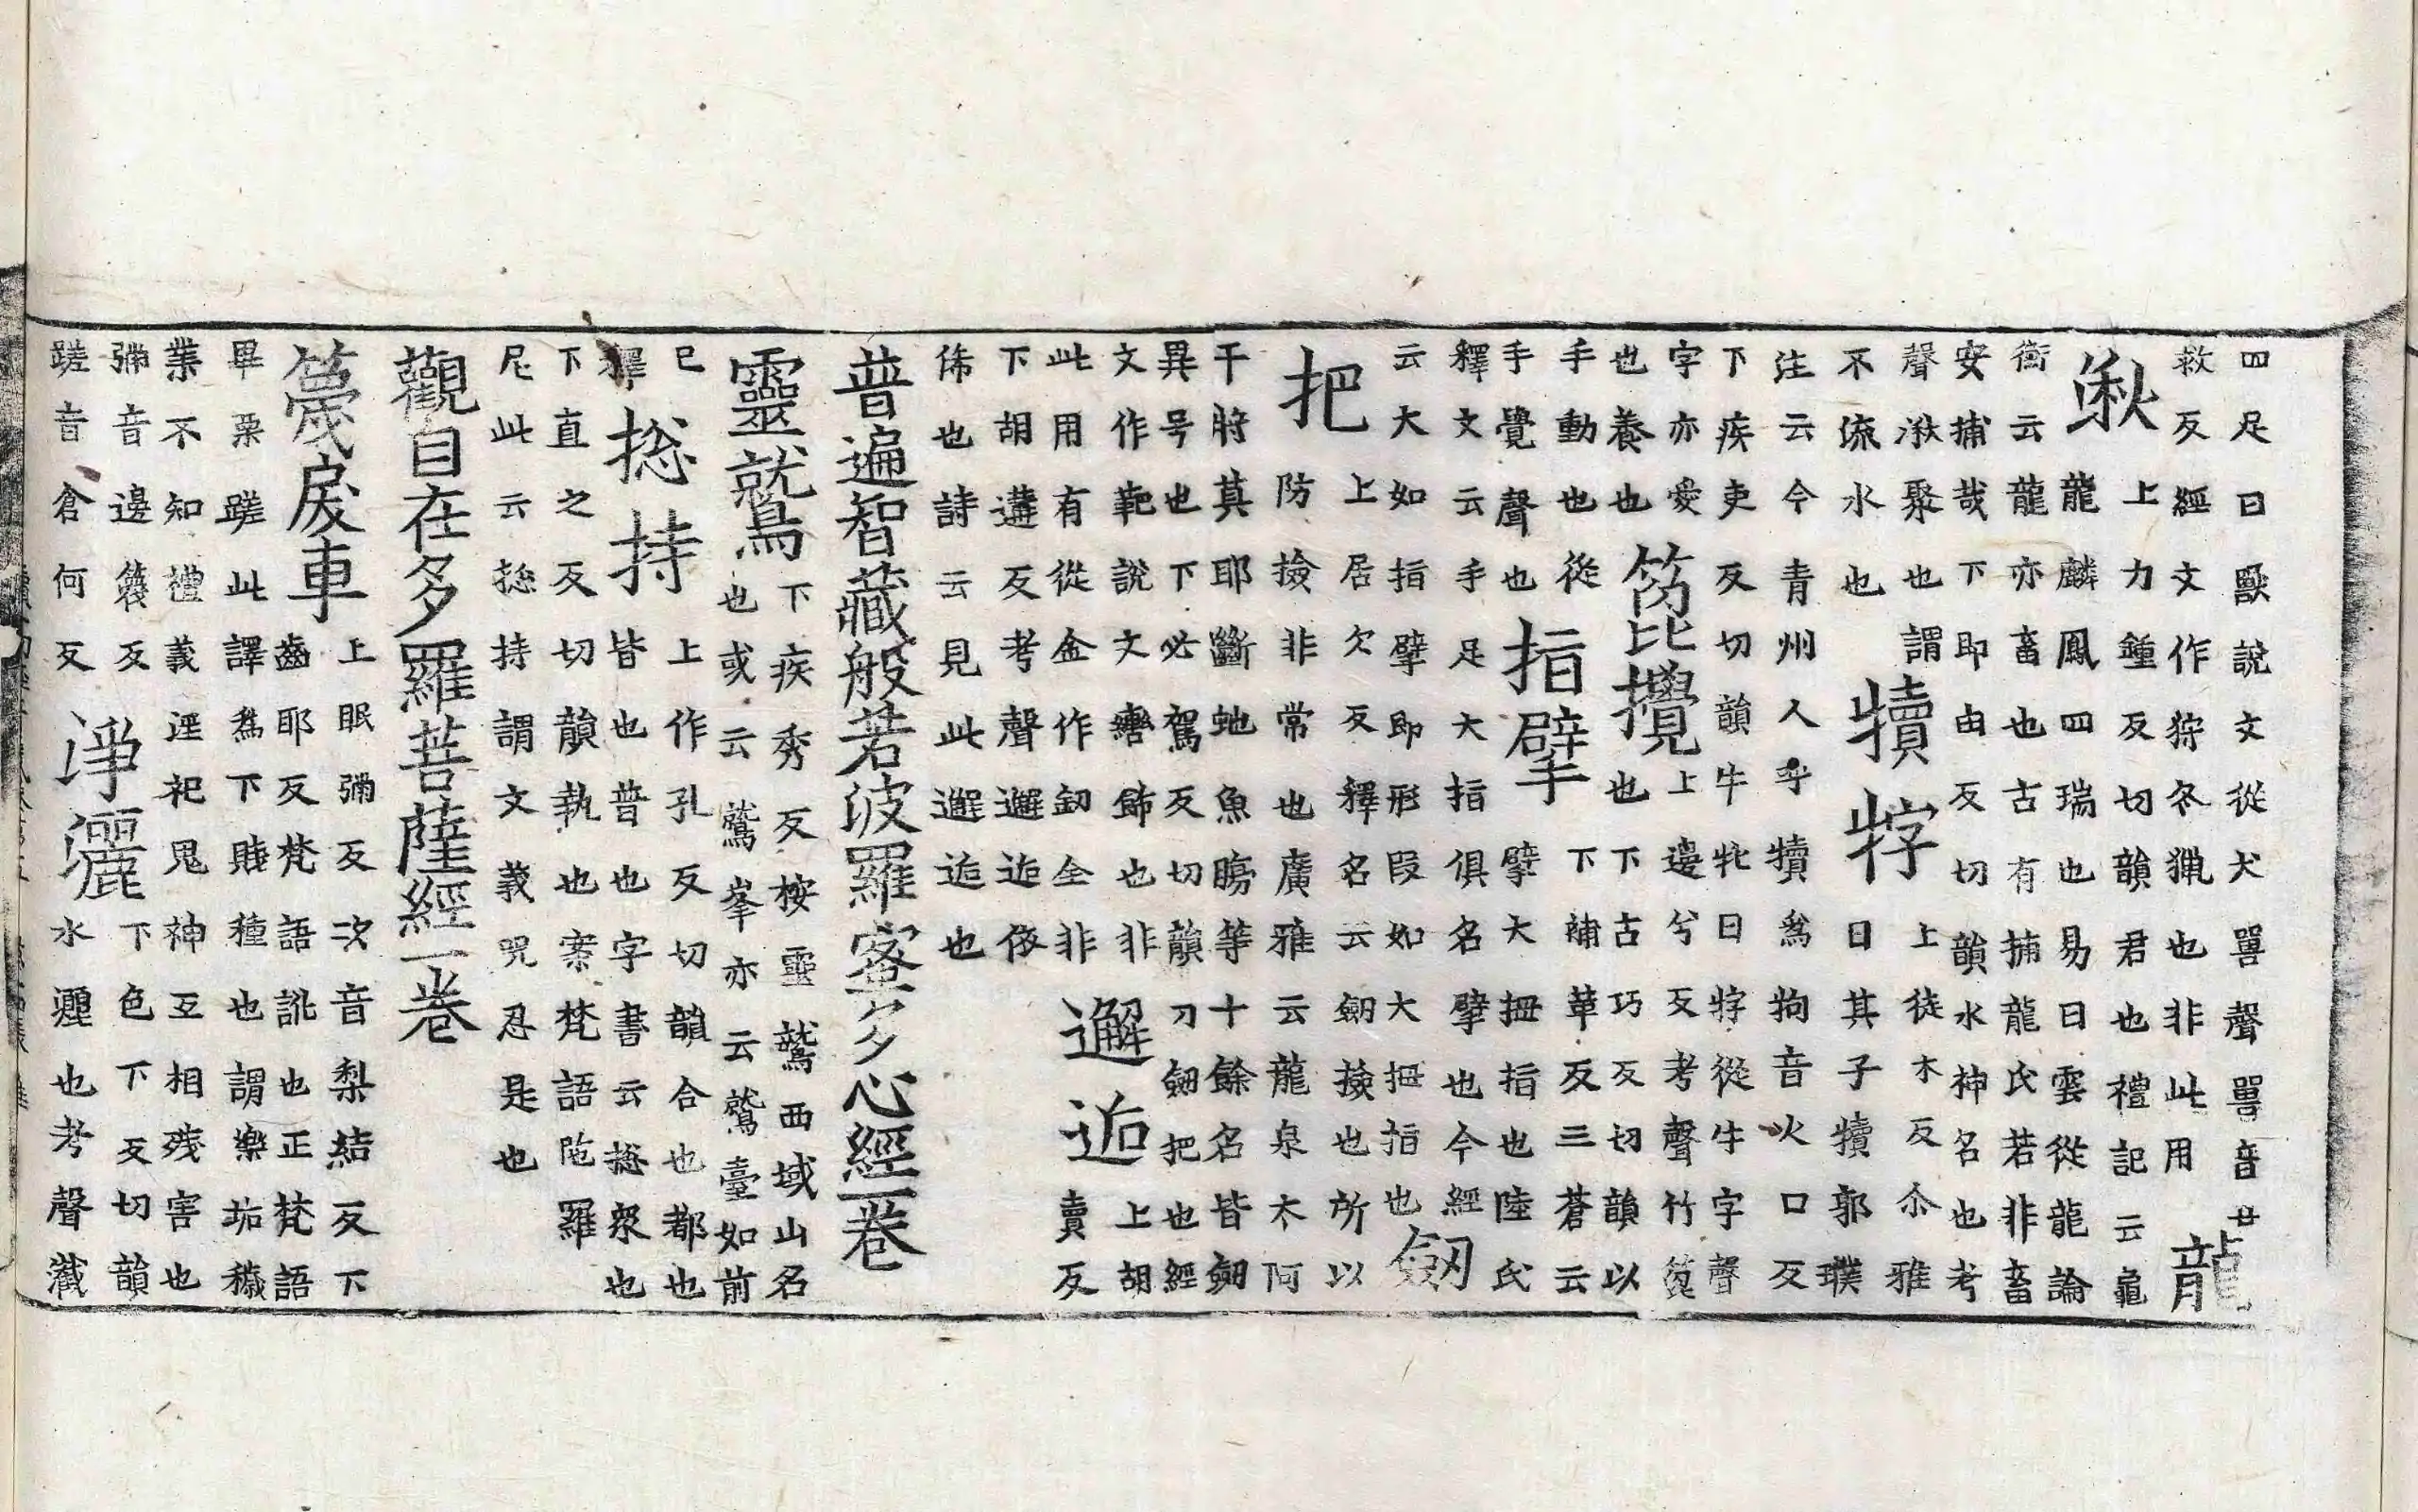 四足曰獸說文從犬嘼聲嘼音廿
救反經文作狩冬獵也非此用
龍
湫
上力鍾反切韻君也禮記云龜
龍麟鳳四瑞也易曰雲從龍論
衡云龍亦畜也古有捕龍氏若非畜
安捕哉下即由反切韻水神名也考
聲湫聚也謂
不流水也
犢牸
上徒木反尒雅
曰其子犢郭璞
注云今青州人乎犢為㸬音火口反
下疾吏反切韻牛牝曰牸從牛字聲
字亦愛也養也
笓攪
上邊兮反考聲竹
也下古巧反切韻以
手動也從
手覺聲也
指擘
下補革反三蒼云
擘大拇指也陸氏
釋文云手足大指俱名擘也今經
云大如指擘即形段如大拇指也
劒把
上居欠反釋名云劒撿也所以
防撿非常也廣雅云龍泉太阿
干將莫耶斷虵魚腸等十餘名皆劒
異号也下必駕反切韻刀劒把也經
文作靶說文轡飾也非
此用有從金作釖全非
邂逅
上胡
賣反
下胡遘反考聲邂逅依
俙也詩云見此邂逅也
普遍智藏般若波羅蜜多心經一卷
靈就鳥
下疾秀反桉靈鷲西域山名
也或云鷲峯亦云鷲臺如前
已
釋
捴持
上作孔反切韻合也都也
皆也普也字書云捴衆也
下直之反切韻執也案梵語陁羅
尼此云捴持謂文義咒忍是也
觀自在多羅菩薩經一卷
篾戾車
上眠彌反次音梨結反下
齒耶反梵語訛也正梵語
畢栗蹉此譯為下賤種也謂樂垢穢
業不知禮義淫祀鬼神互相殘害也
彌音邊篾反
蹉音倉何反
淨灑
下色下反切韻
水灑也考聲灑